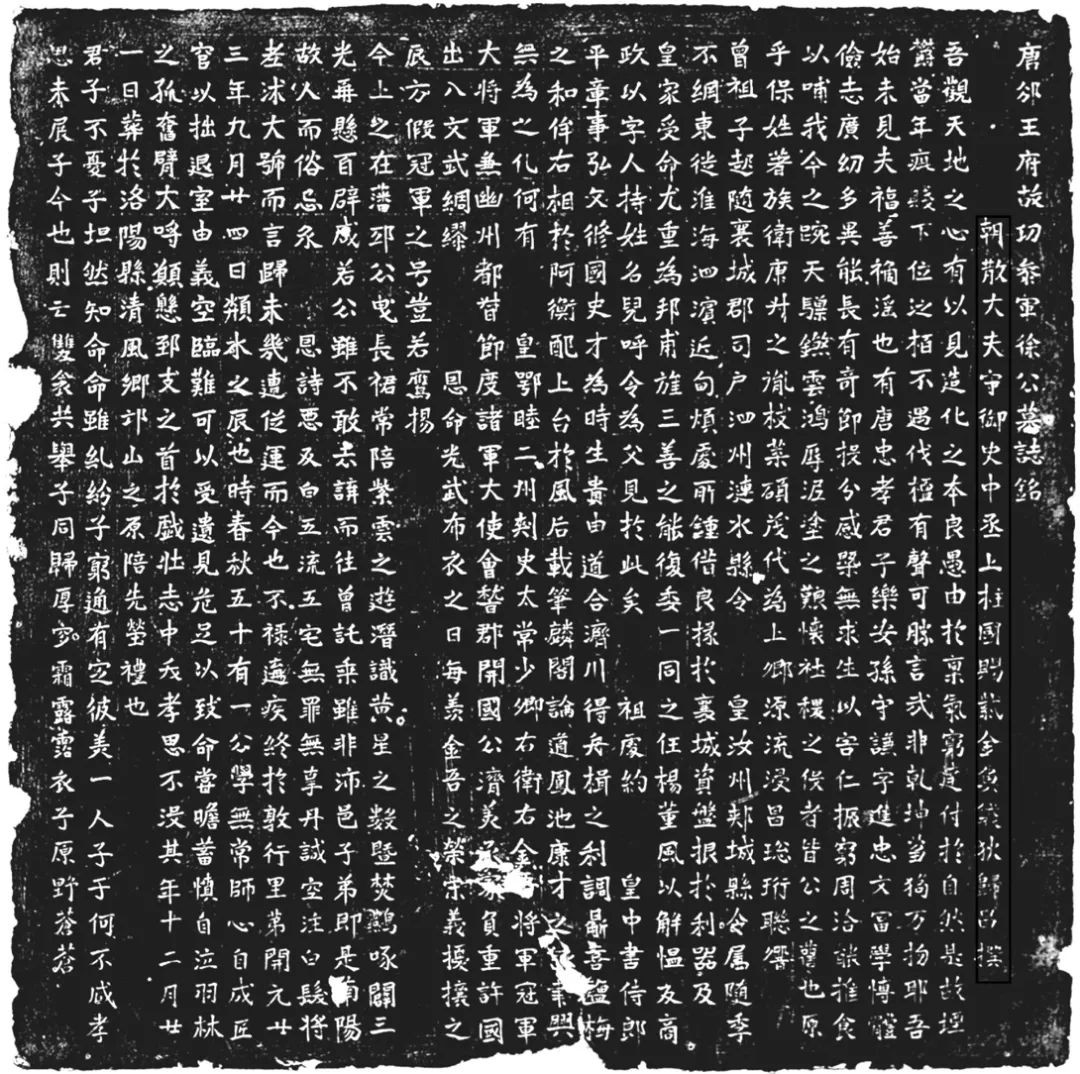 唐邠王府故功參軍徐公墓誌銘
朝散大夫守御史中丞上柱國賜紫金魚袋狄歸昌撰
吾觀天地之心有以見造化之本良愚由於稟氣窮達付於自然是故
當年疲下位之栢不遇伐檀有聲可勝言哉非乾坤芻狗万物耶吾
始未見夫福善禍淫也有唐忠孝君子樂安孫守謙字進忠文富學博體
儉志廣幼多異能長有奇節投分感槩無求生以害仁振窮周洽能推食
以哺我今之踠天驥鎩雲鴻辱泥塗之艱懷社稷之後者皆公之謂也原
乎保姓著族衛康叔之胤枝葉碩茂代為上卿源流浸昌珩聯響
曾祖子起隨襄城郡司戶泗州漣水縣令 皇汝州郟城縣令属隨季
不綱東徙淮海泗濱近句煩劇所鍾借良掾於襄城資盤根於利器及
皇家受命尤重為邦甫旌三善之能復委一同之任楊董風以解慍友高
政以字人持姓名兒呼令為父見於此矣 祖處約 皇中書侍郎
平章事弘文修國史才為時生貴由道合濟川得舟楫之利調鼎喜鹽梅
之和侔右相於阿衡配上台於風后載筆麟閣論道鳳池康才之興
無為之化何有 皇鄂睦二州刺史太常少卿右衛右金將軍冠軍
大將軍兼幽州都督節度諸軍大使會稽郡開國公濟美負重許國
出入文武綢繆 恩命光武布衣之日每羨金吾之榮宗義擾攘之
辰方假冠軍之号豈若鷹揚
今上之在藩邸公曳長裾常陪紫雲之遊潛識黃星之數暨焚鸛啄闢三
光再懸百辟咸若公雖不敢忝諱而往曾託乘雖非沛邑子弟即是南陽
故人而俗忌 恩詩惡及白五流五宅無罪無辜丹誠空注白髮將
孝沭大號而言歸未幾遭迍運而今也不祿遘疾終於敦行里第開元廿
三年九月廿四日類水之辰也時春秋五十有一公學無常師心自成匠
官以拙退室由義空臨難可以受遺見危足以致命嘗瞻蓄憤自泣羽林
之孤奮臂大呼願懸郅支之首於戲壯志中夭孝思不沒其年十二月廿
一日葬於洛陽縣清風鄉邙山之原陪先塋禮也
君子不憂子坦然知命命雖糺紛子窮通有定彼美一人子于何不咸孝
思未展子今也則亡雙衾共舉子同歸厚穸霜露霑衣子原野蒼蒼